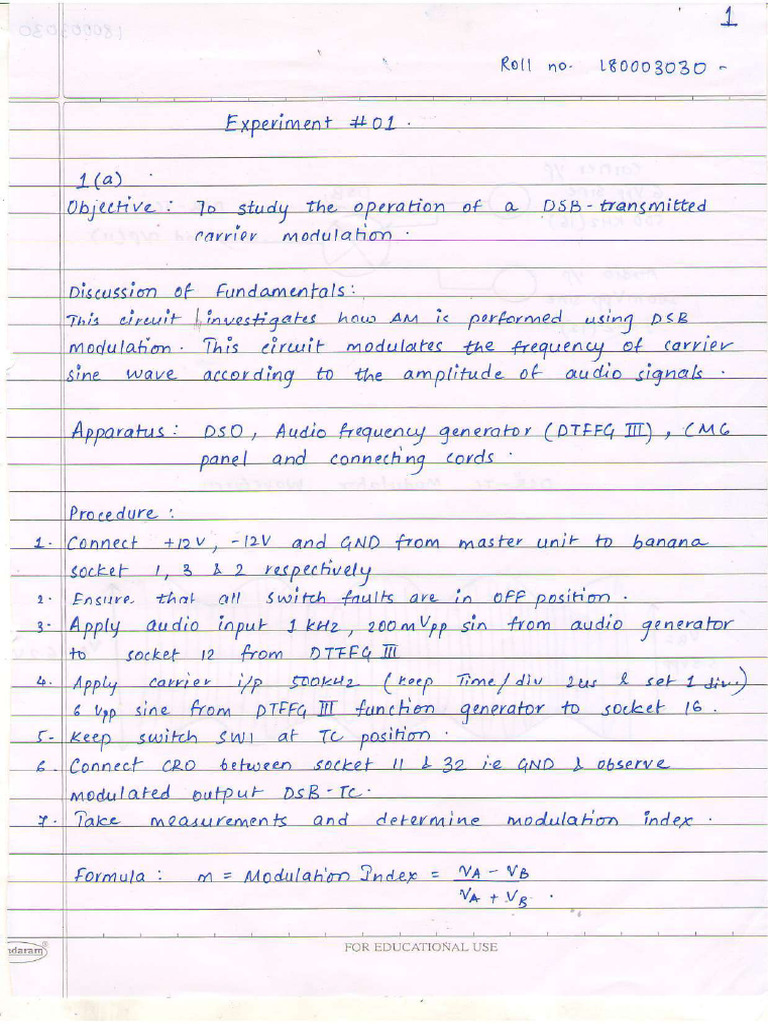 1
Roll no. 180003030 -
Experiment #01.
1(a)
Objective: To study the operation of a DSB-transmitted
carrier modulation.
Discussion of Fundamentals:
This circuit investigates how AM is performed using DSB
modulation. This circuit modulates the frequency of carrier
sine wave according to the amplitude of audio signals.
Apparatus: DSO, Audio frequency generator (DTFFG III), CMG
panel and connecting cords.
Procedure:
1. Connect +12V, -12V and GND from master unit to banana
socket 1, 3 & 2 respectively
2. Ensure that all switch faults are in OFF position.
3. Apply audio input 1 kHz, 200mVpp sin from audio generator
to socket 12 from DTFFG III
4. Apply carrier i/p 500kHz (keep Time/div 2us & set 1 div.)
6 Vpp sine from DTFFG III function generator to socket 16.
5. Keep switch SW1 at TC position.
6. Connect CRO between socket 11 & 32 i.e GND & observe
modulated output DSB-TC.
7. Take measurements and determine modulation index.
Formula: m = Modulation Index = VA - VB
VA + VB.
ndaram®
FOR EDUCATIONAL USE